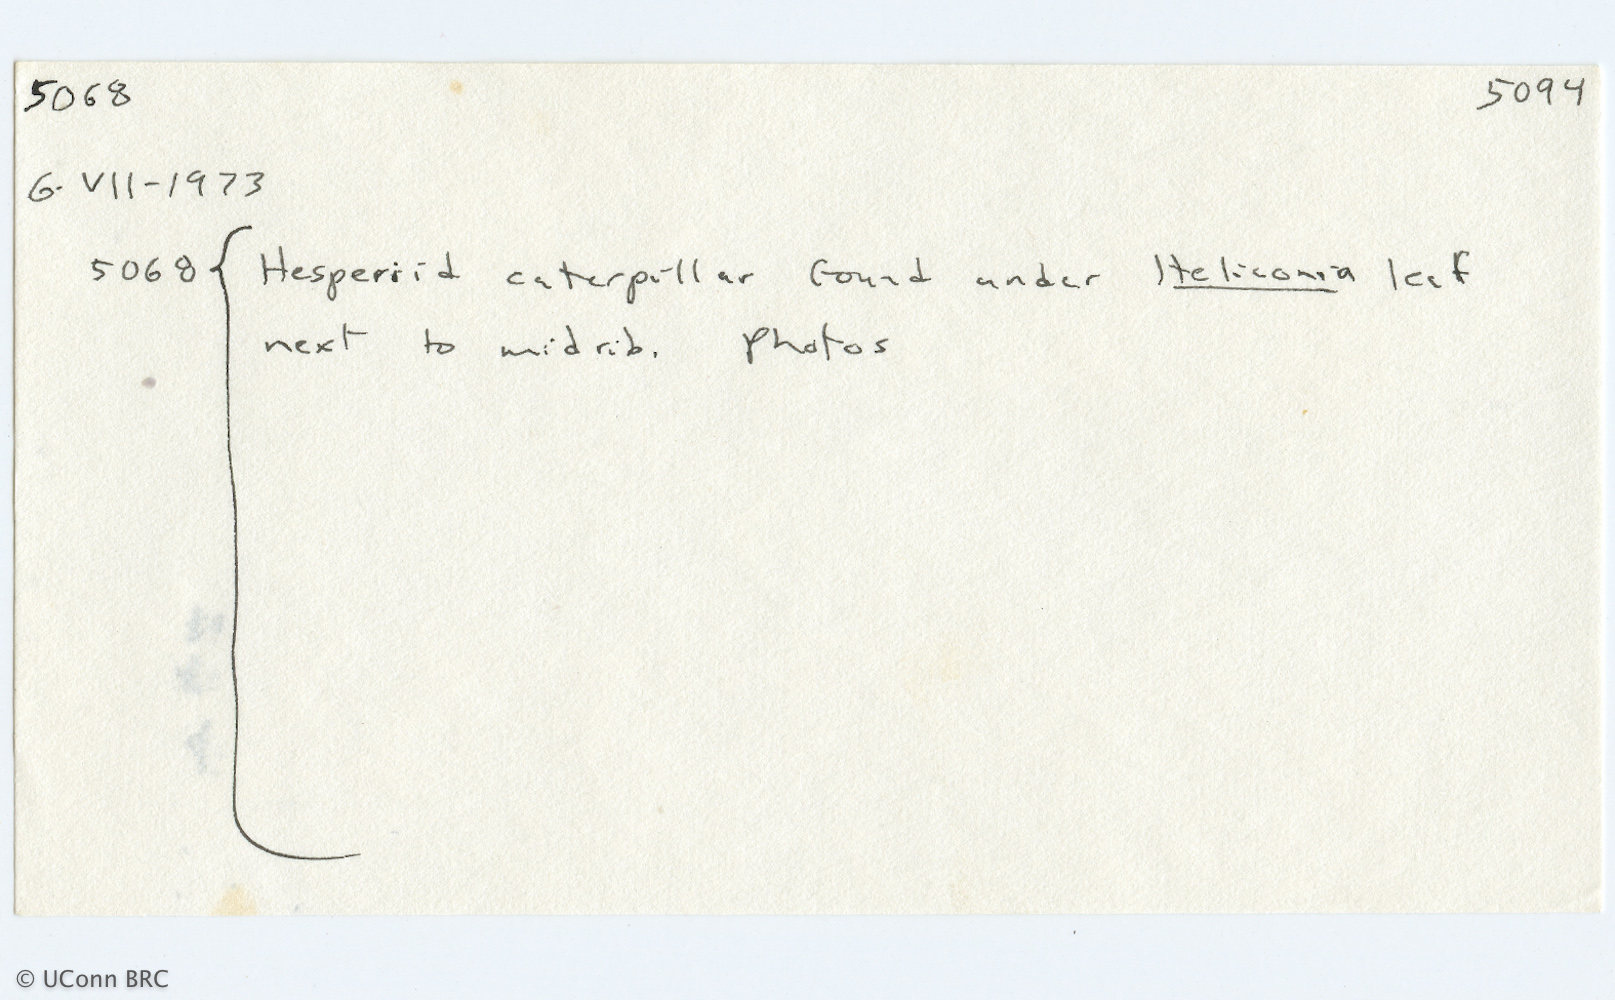 5068 5094
6-VII-1973
5068 { Hesperiid caterpillar found under Heliconia leaf
next to midrib. Photos
© UConn BRC